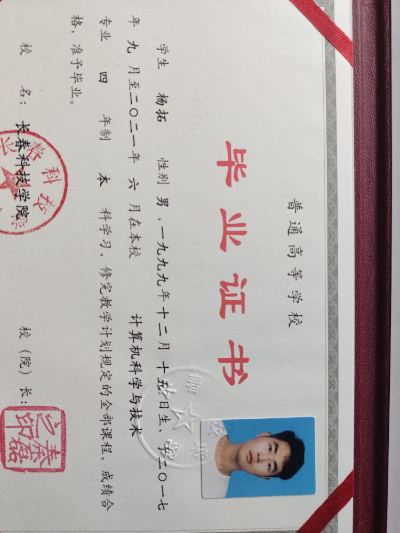 普通高等学校
毕业证书
学生 杨拓 性别 男，一九九九年十二月十五日生，于二〇一七
年九月至二〇二一年六月在本校 计算机科学与技术
专业 四年制 本科学习，修完教学计划规定的全部课程，成绩合
格，准予毕业。
校 名：长春科技学院 校（院）长：